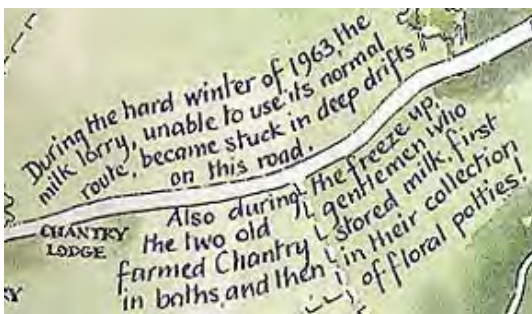 During the hard winter of 1963, the
milk lorry, unable to use its normal
route, became stuck in deep drifts
on this road.
Also during the freeze up,
the two old gentlemen who
farmed Chantry stored milk, first
in baths, and then in their collection
of floral potties!
CHANTRY
LODGE